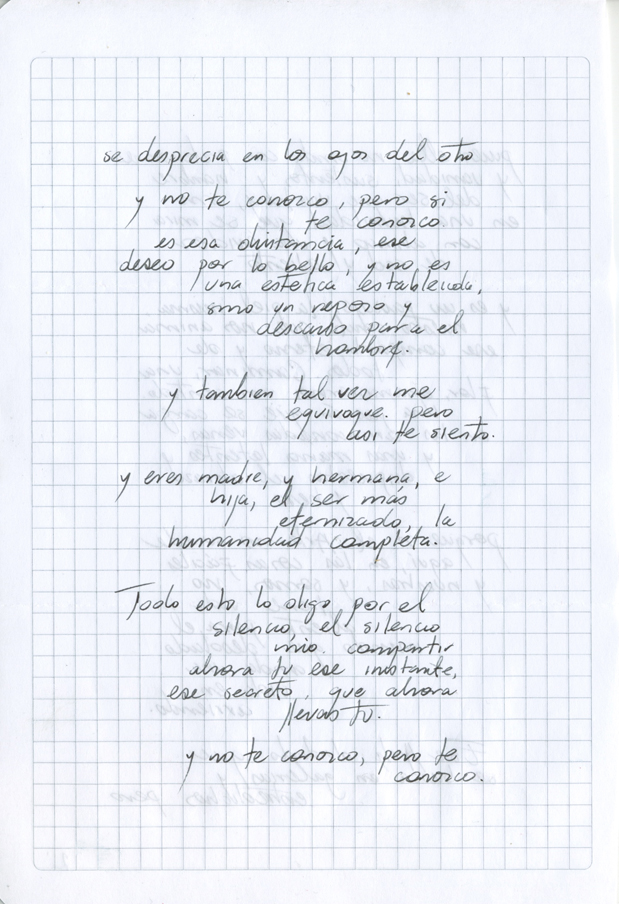 se desprecia en los ojos del otro
y no te conozco, pero si
te conozco
es esa distancia, ese
deseo por lo bello, y no es
una estetica establecida,
sino un reposo y
descanso para el
hombre.
y tambien tal vez me
equivoque. pero
asi te siento.
y eres madre, y hermana, e
hija, el ser más
eternizado, la
humanidad completa.
Todo esto lo digo por el
silencio, el silencio
mio. compartir
ahora tu ese instante,
ese secreto, que ahora
llevas tu.
y no te conozco, pero te
conozco.